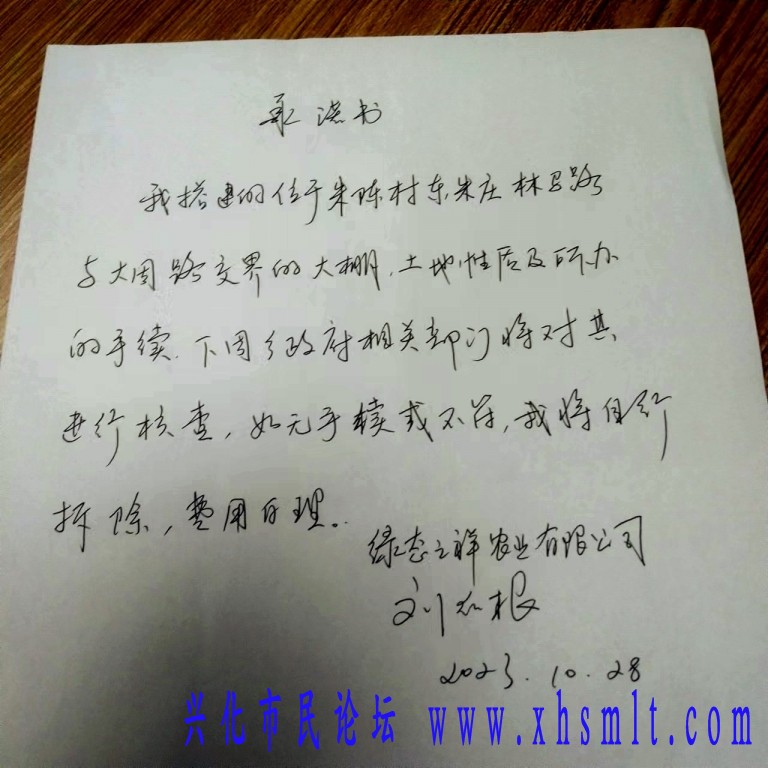 承诺书
我搭建的位于朱陈村东朱庄林马路
与大周路交界的大棚,土地性质及所办
的手续.下周乡政府相关部门将对其
进行核查,如无手续或不符,我将自行
拆除,费用自理.
绿态之祥农业有限公司
刘 根
2023.10.28
兴化市民论坛 www.xhsmlt.com